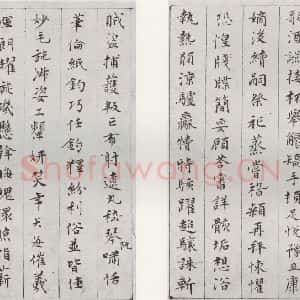 接杯舉觴矯手頓足悅豫且康
嫡後續嗣祭祀蒸嘗稽顙再拜悚懼
恐惶牋牒簡要顧答審詳骸垢想浴
執熱願涼驢騾犢特駭躍超驤誅斬
賊盜捕獲叛亡布射遼丸嵇琴阮嘯恬
筆倫紙鈞巧任釣釋紛利俗並皆佳
妙毛施淑姿工顰妍笑年矢每催羲
暉朗耀旋璣懸斡晦魄環照指薪
Shufawang.CN